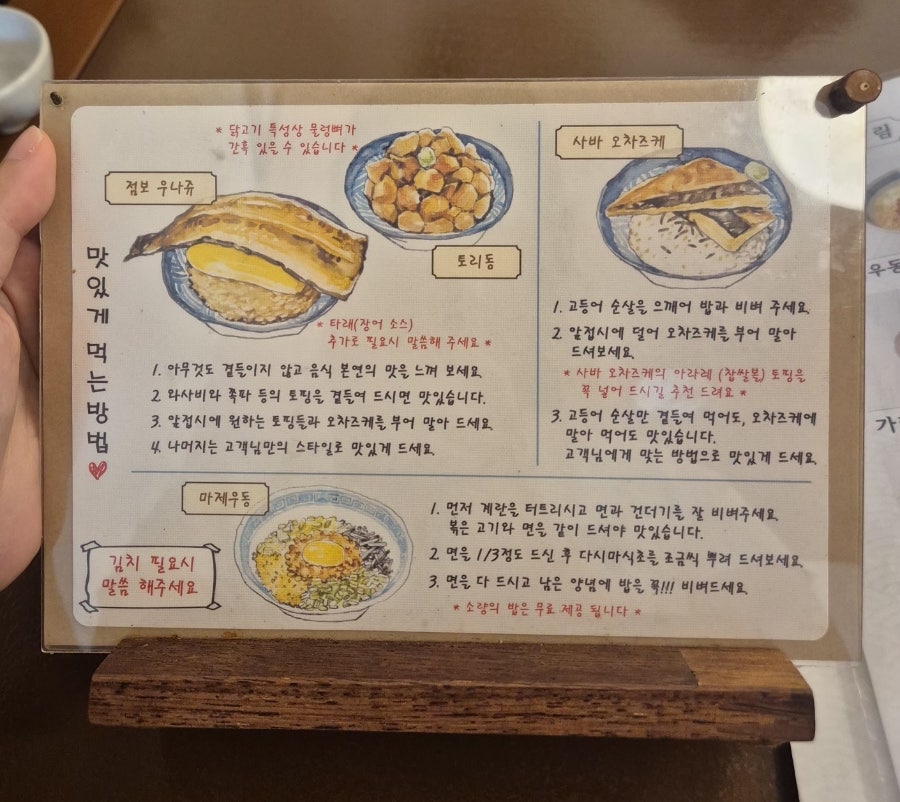 맛있게 먹는방법
* 닭고기 특성상 물렁뼈가
간혹 있을 수 있습니다 *
점보 우나쥬
토리동
* 타래(장어 소스)
추가로 필요시 말씀해 주세요 *
1. 아무것도 곁들이지 않고 음식 본연의 맛을 느껴 보세요.
2. 와사비와 쪽파 등의 토핑을 곁들여 드시면 맛있습니다.
3. 앞접시에 원하는 토핑들과 오차즈케를 부어 말아 드세요.
4. 나머지는 고객님만의 스타일로 맛있게 드세요.
사바 오차즈케
1. 고등어 순살을 으깨어 밥과 비벼 주세요.
2. 앞접시에 덜어 오차즈케를 부어 말아
드셔보세요.
* 사바 오차즈케의 아라레 (찹쌀볼) 토핑을
꼭 넣어 드시길 추천 드려요 *
3. 고등어 순살만 곁들여 먹어도, 오차즈케에
말아 먹어도 맛있습니다.
고객님에게 맞는 방법으로 맛있게 드세요.
마제우동
김치 필요시
말씀 해주세요
1. 먼저 계란을 터트리시고 면과 건더기를 잘 비벼주세요.
볶은 고기와 면을 같이 드셔야 맛있습니다.
2. 면을 1/3정도 드신 후 다시마식초를 조금씩 뿌려 드셔보세요.
3. 면을 다 드시고 남은 양념에 밥을 꼭!!! 비벼드세요.
* 소량의 밥은 무료 제공 됩니다 *
림
우동